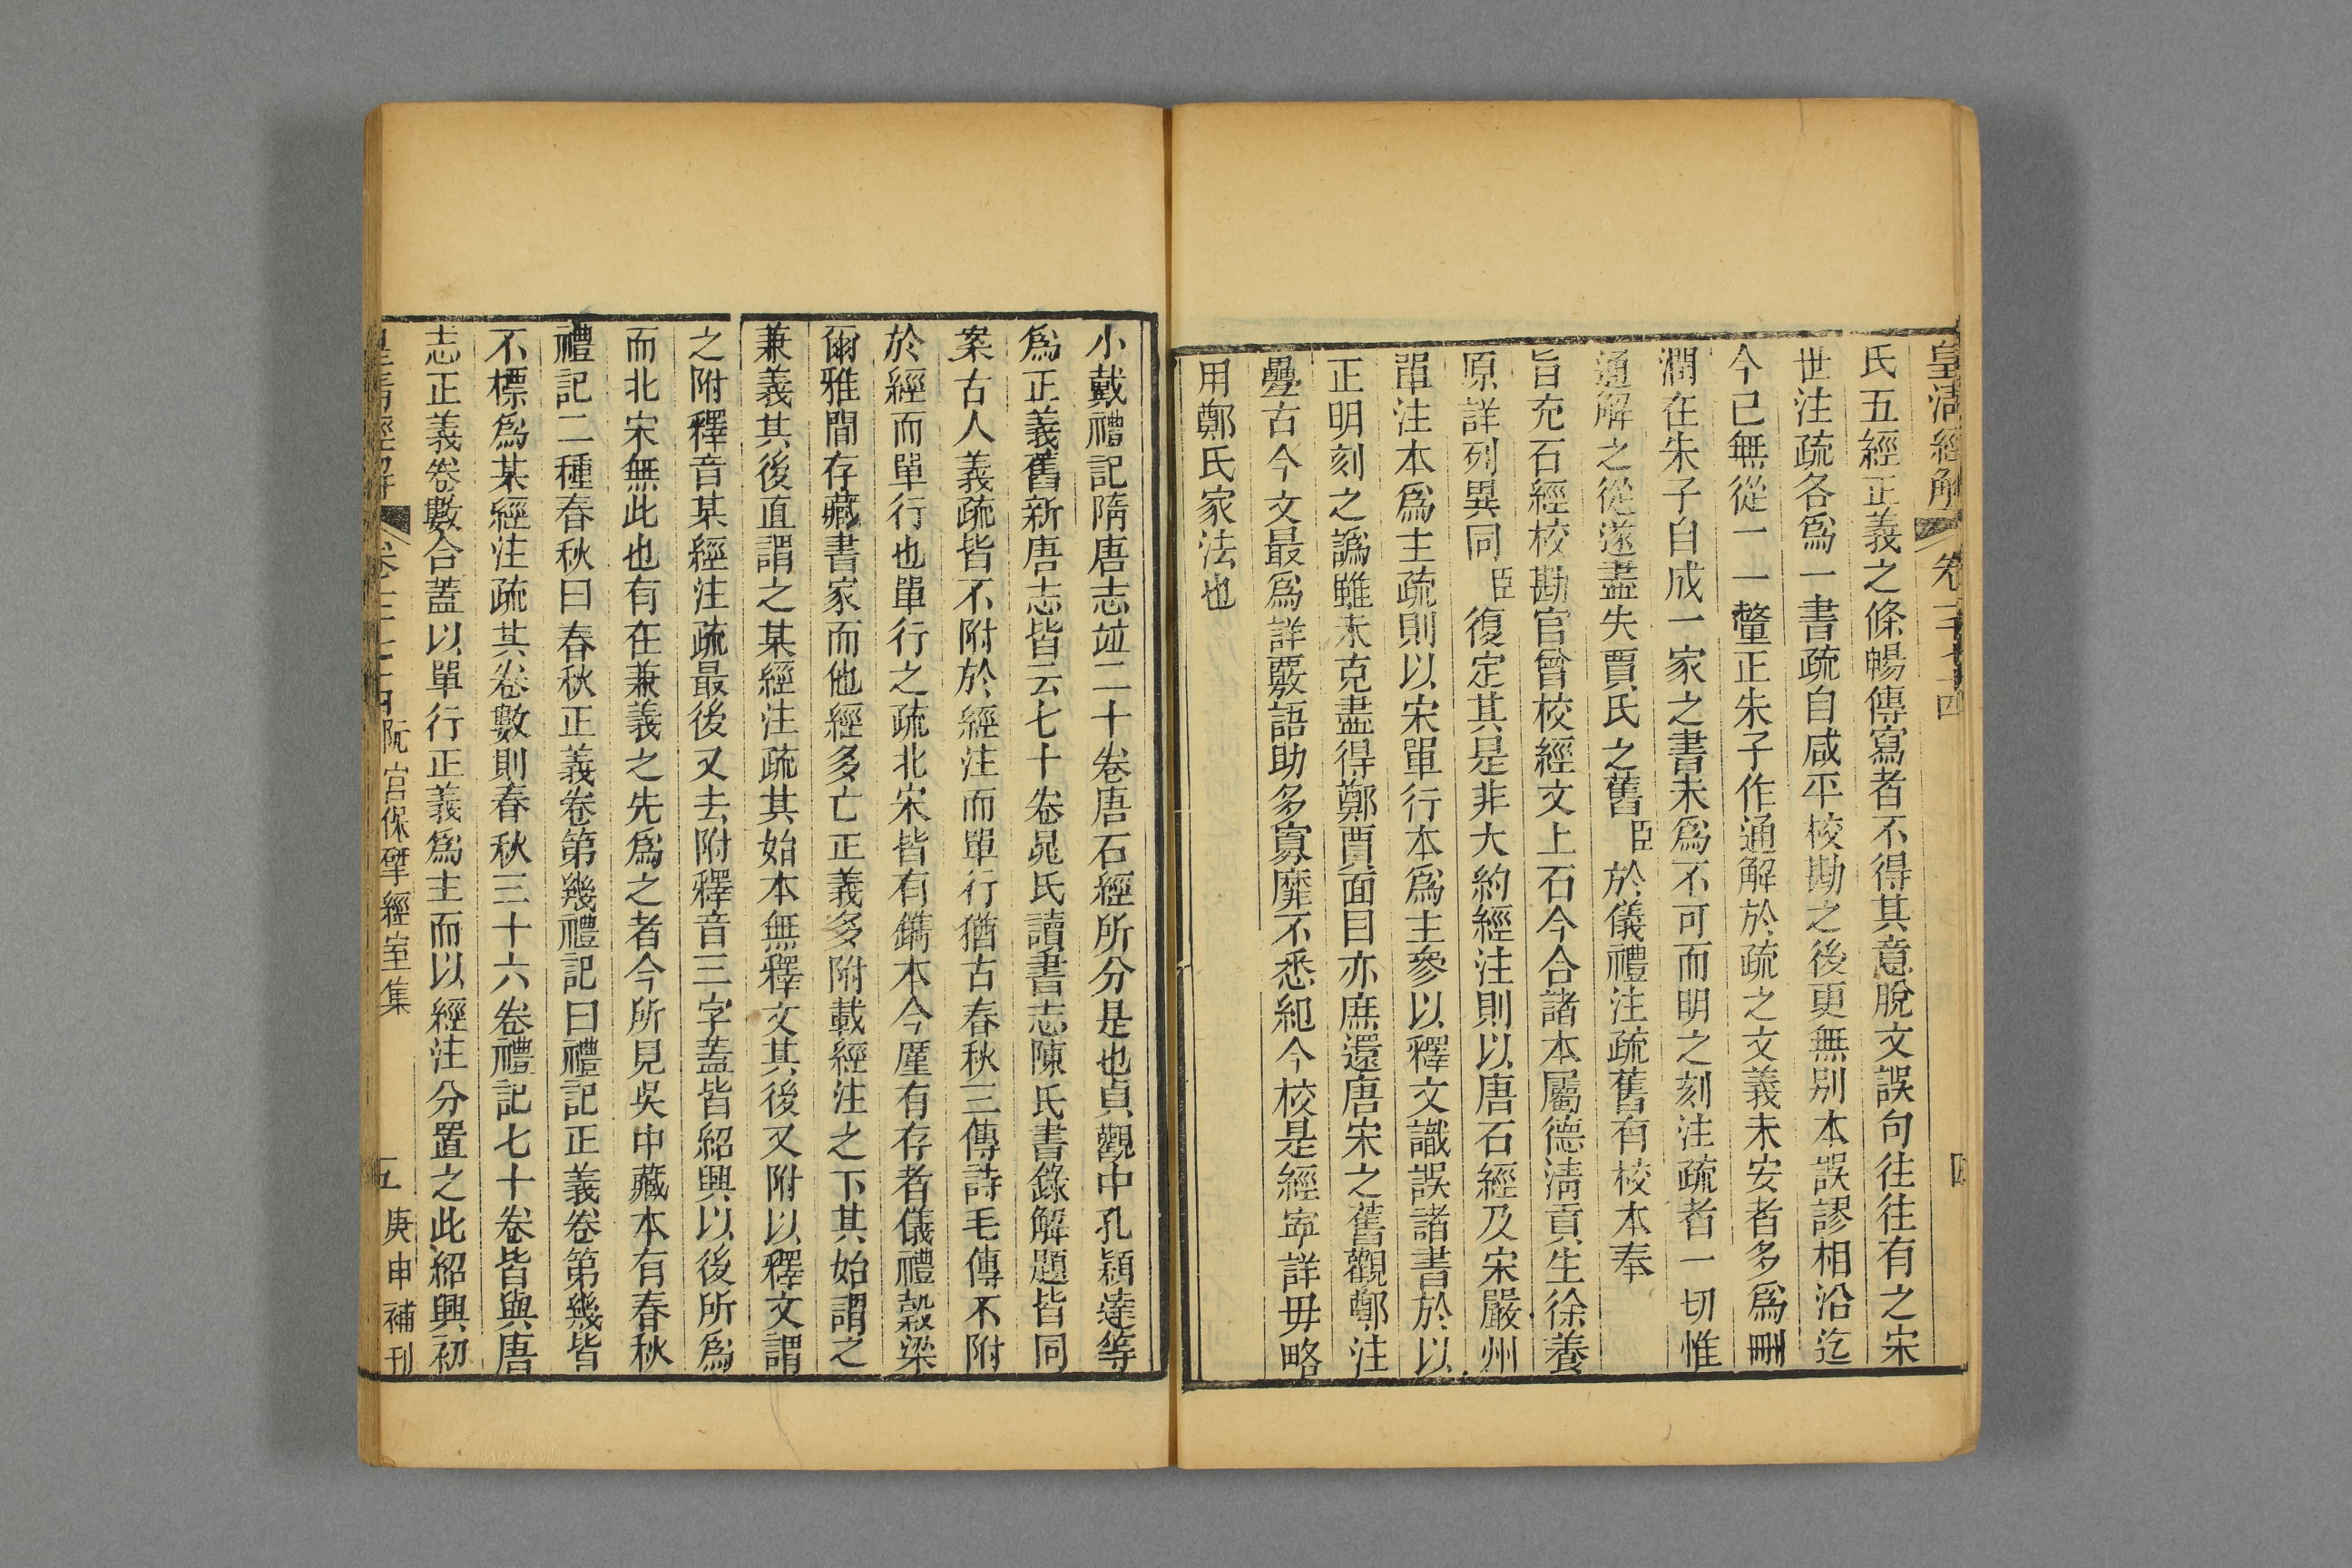 皇清經解 卷一千七十四 四
氏五經正義之條暢傳寫者不得其意脫文誤句往往有之宋
世注疏各爲一書疏自咸平校勘之後更無別本誤謬相沿迄
今已無從一一釐正朱子作通解於疏之文義未安者多爲刪
潤在朱子自成一家之書未爲不可而明之刻注疏者一切惟
通解之從遂盡失賈氏之舊臣於儀禮注疏舊有校本奉
旨充石經校勘官曾校經文上石今合諸本屬德淸貢生徐養
原詳列異同臣復定其是非大約經注則以唐石經及宋嚴州
單注本爲主疏則以宋單行本爲主參以釋文識誤諸書於以
正明刻之譌雖未克盡得鄭賈面目亦庶還唐宋之舊觀鄭注
疊古今文最爲詳覈語助多寡靡不悉紀今校是經寧詳毋略
用鄭氏家法也
小戴禮記隋唐志竝二十卷唐石經所分是也貞觀中孔穎達等
爲正義舊新唐志皆云七十卷晁氏讀書志陳氏書錄解題皆同
案古人義疏皆不附於經注而單行猶古春秋三傳詩毛傳不附
於經而單行也單行之疏北宋皆有鐫本今厪有存者儀禮穀梁
爾雅間存藏書家而他經多亡正義多附載經注之下其始謂之
兼義其後直謂之某經注疏其始本無釋文其後又附以釋文謂
之附釋音某經注疏最後又去附釋音三字蓋皆紹興以後所爲
而北宋無此也有在兼義之先爲之者今所見吳中藏本有春秋
禮記二種春秋曰春秋正義卷第幾禮記曰禮記正義卷第幾皆
不標爲某經注疏其卷數則春秋三十六卷禮記七十卷皆與唐
志正義卷數合蓋以單行正義爲主而以經注分置之此紹興初
皇清經解 卷一千七十四 阮宮保揅經室集 五 庚申補刊